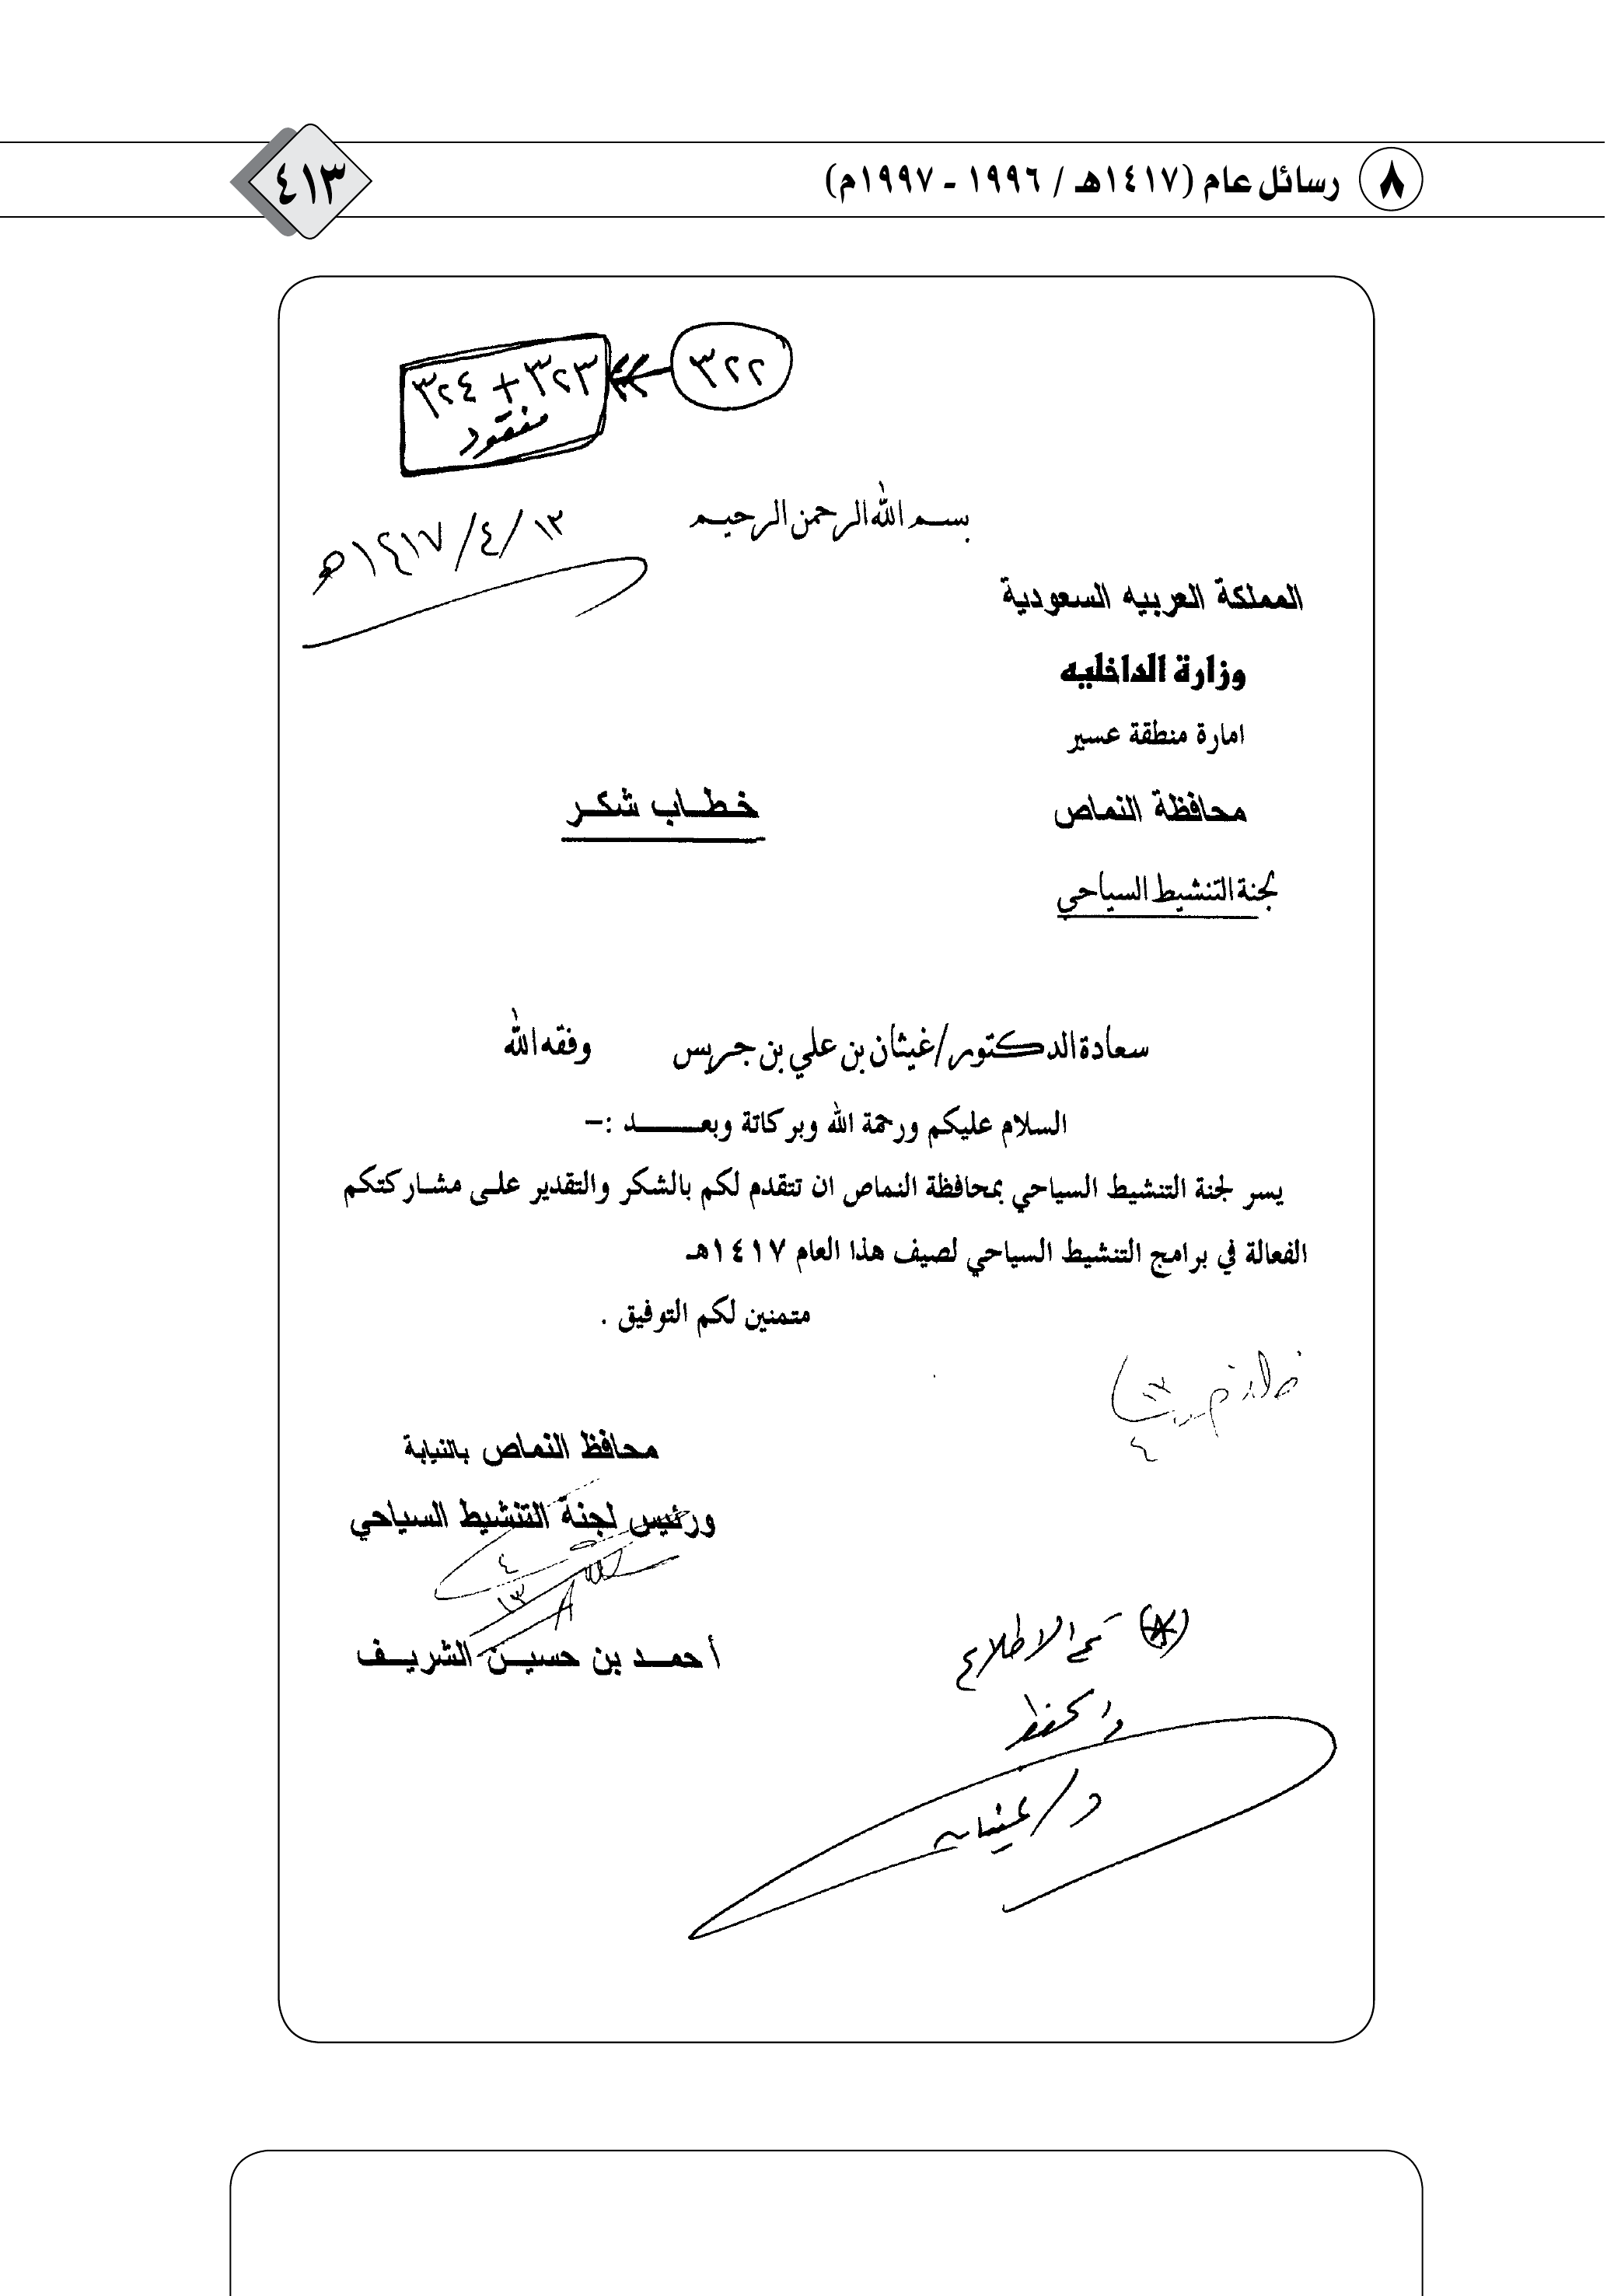 ٨ رسائل عام (١٤١٧هـ / ١٩٩٦ - ١٩٩٧م)
٤١٣
٣٢٢
٣٢٣ + ٣٢٤
مفقود
بسم الله الرحمن الرحيم
١٣/٤/١٤١٧هـ
المملكة العربيه السعودية
وزارة الداخليه
امارة منطقة عسير
محافظة النماص
خطاب شكر
لجنة التنشيط السياحي
سعادة الدكتور/غيثان بن علي بن جريس وفقه الله
السلام عليكم ورحمة الله وبركاتة وبعد :-
يسر لجنة التنشيط السياحي بمحافظة النماص ان تتقدم لكم بالشكر والتقدير على مشاركتكم
الفعالة في برامج التنشيط السياحي لصيف هذا العام ١٤١٧هـ
متمنين لكم التوفيق .
محافظ النماص بالنيابة
ورئيس لجنة التنشيط السياحي
٤
١٣
أحمد بن حسين الشريف
تم الاطلاع
والحفظ
د/غيثان